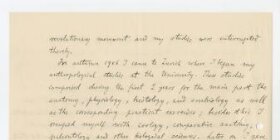 revolutionary movement and my studies were interrupted
thereby.
In autumn 1906 I came to Zurich where I began my
anthropological studies at the University. These studies
comprised during the first 2 years for the main part the
anatomy, physiology, histology, and embryology as well
as the corresponding practical exercises; besides this I
occupied myself with zoology, comparative anatomy,
palaeontology and other biological sciences. Later on I